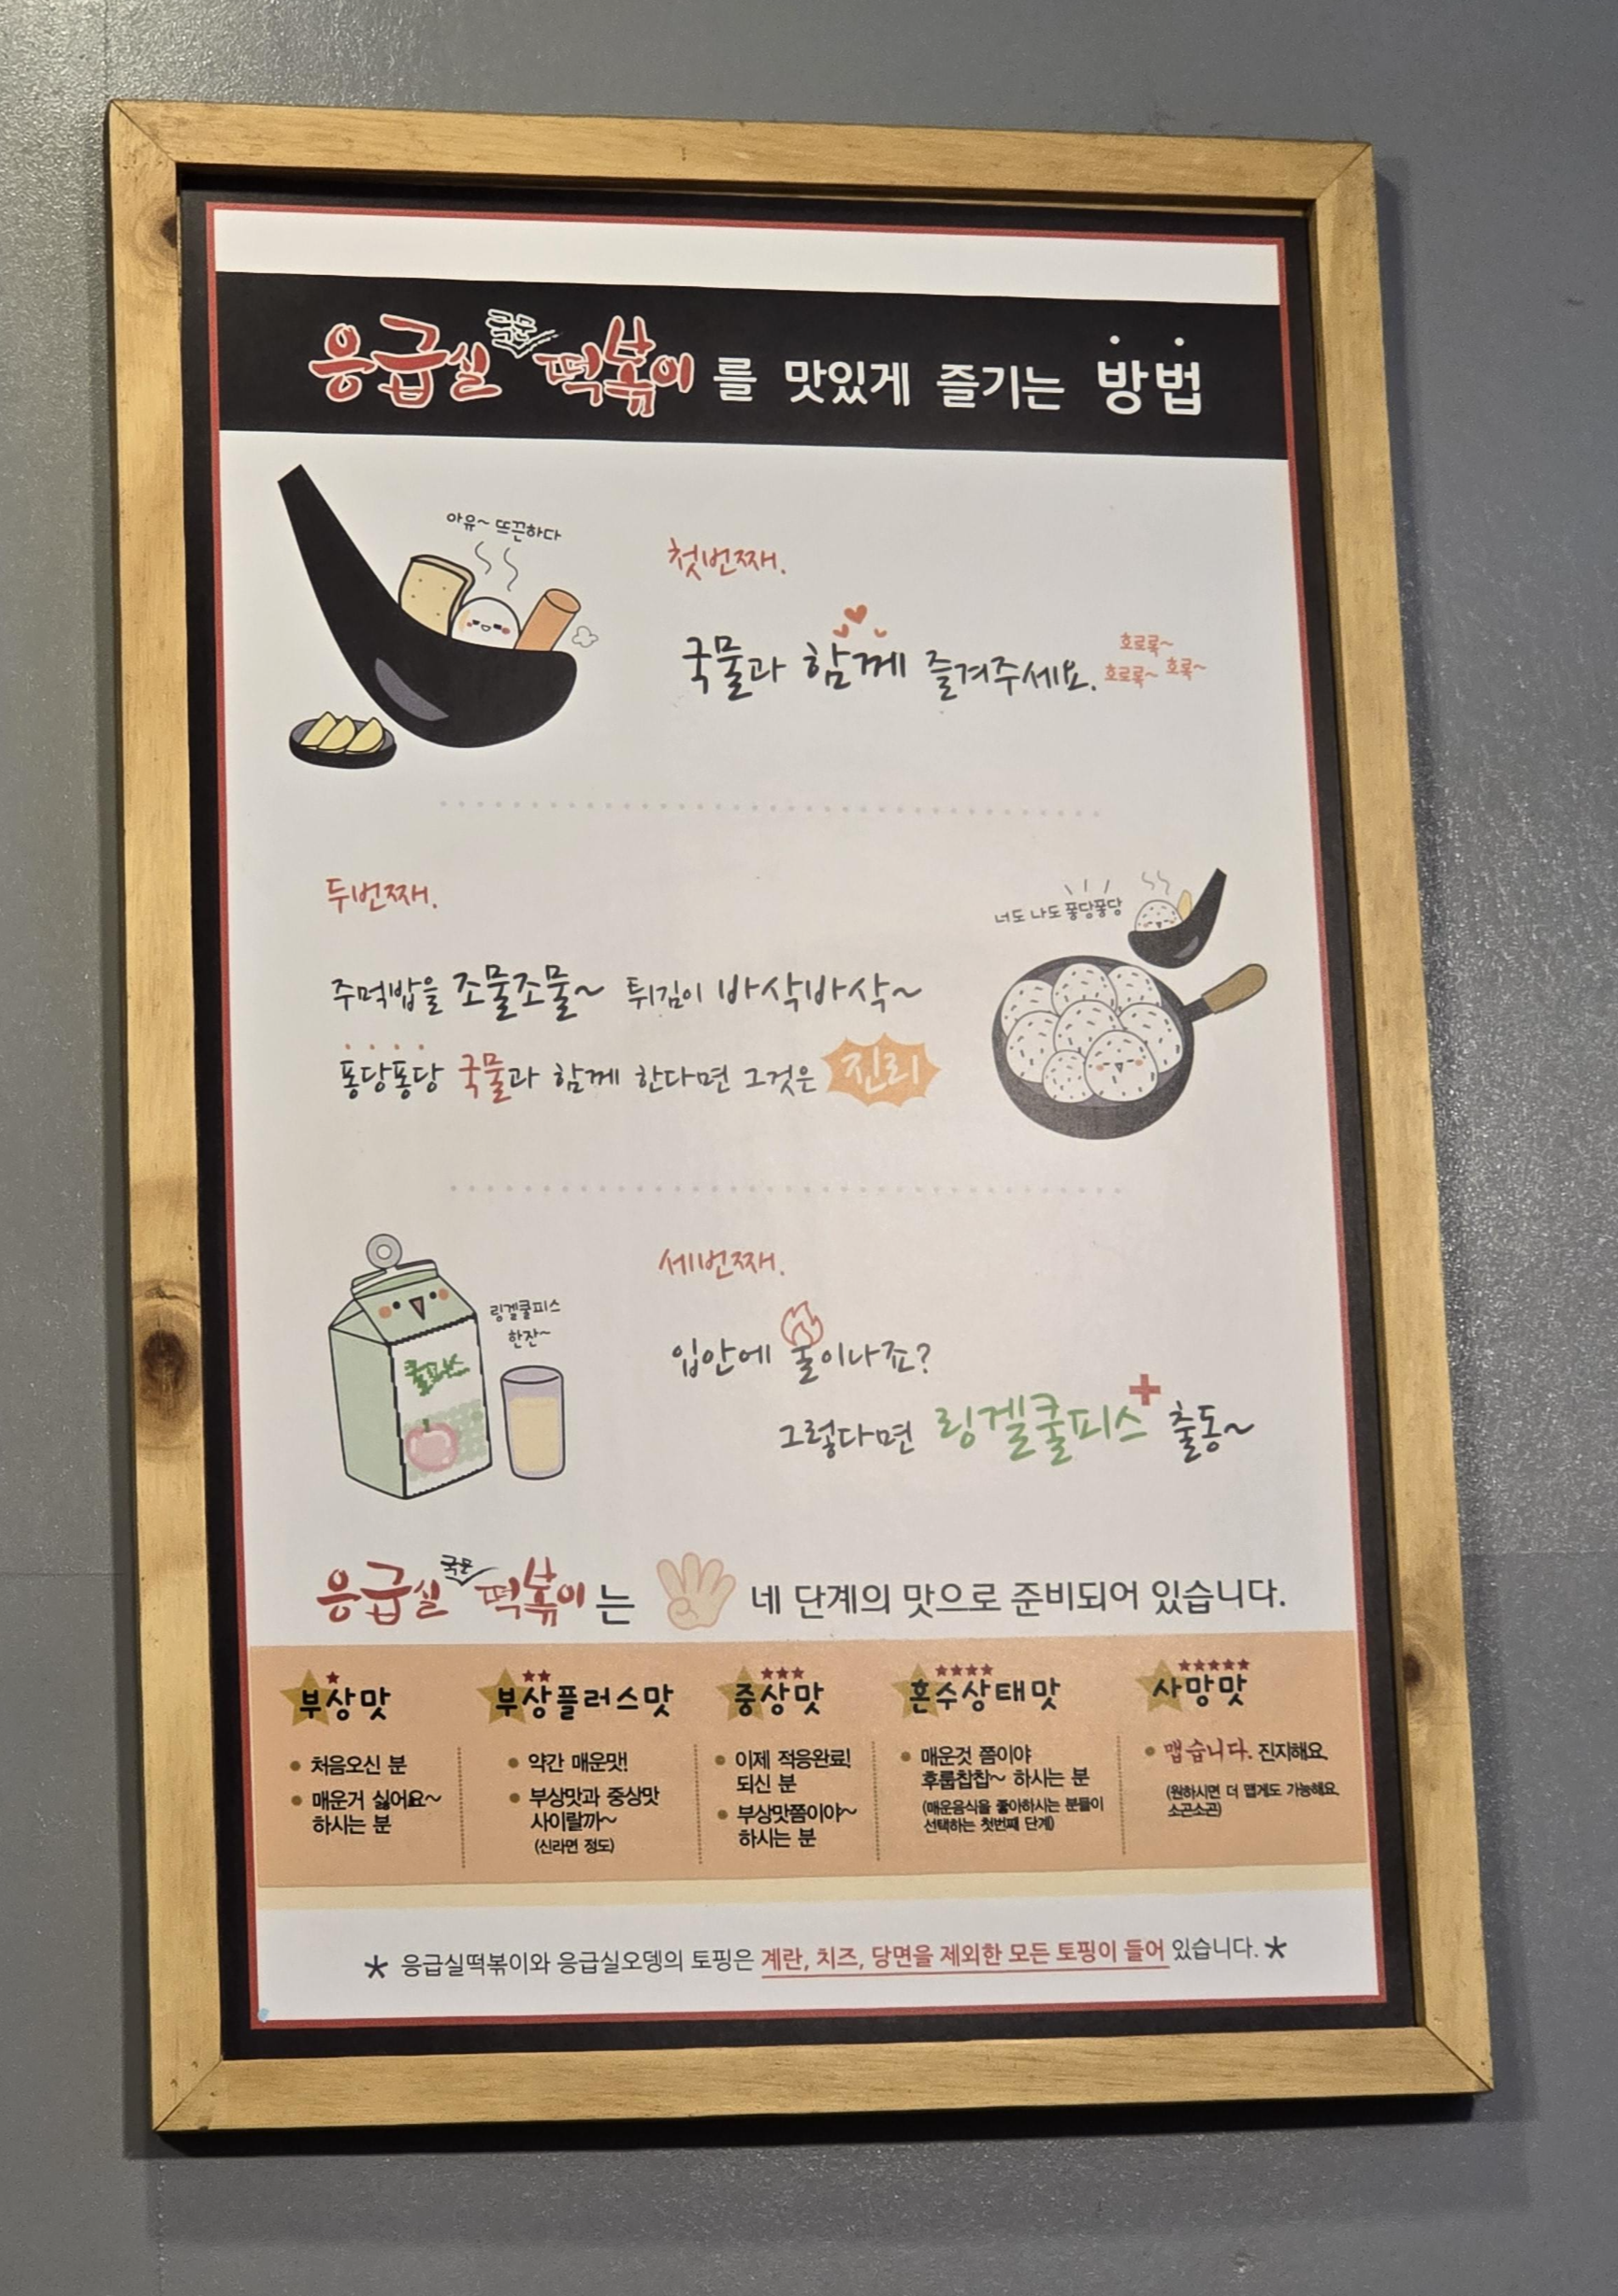 응급실 국물 떡볶이를 맛있게 즐기는 방법
아유~ 뜨끈하다
첫번째.
국물과 함께 즐겨주세요.
호로록~
호로록~ 호록~
두번째.
너도 나도 퐁당퐁당
주먹밥을 조물조물~ 튀김이 바삭바삭~
퐁당퐁당 국물과 함께 한다면 그것은 진리
세번째.
링겔쿨피스
한잔~
쿨피스
입안에 불이나죠?
그렇다면 링겔쿨피스+ 출동~
응급실 국물 떡볶이는 네 단계의 맛으로 준비되어 있습니다.
부상맛
처음오신 분
매운거 싫어요~
하시는 분
부상플러스맛
약간 매운맛!
부상맛과 중상맛
사이랄까~
(신라면 정도)
중상맛
이제 적응완료!
되신 분
부상맛쯤이야~
하시는 분
혼수상태맛
매운것 쯤이야
후룹찹찹~ 하시는 분
(매운음식을 좋아하시는 분들이
선택하는 첫번째 단계)
사망맛
맵습니다. 진지해요.
(원하시면 더 맵게도 가능해요.
소곤소곤)
* 응급실떡볶이와 응급실오뎅의 토핑은 계란, 치즈, 당면을 제외한 모든 토핑이 들어 있습니다. *